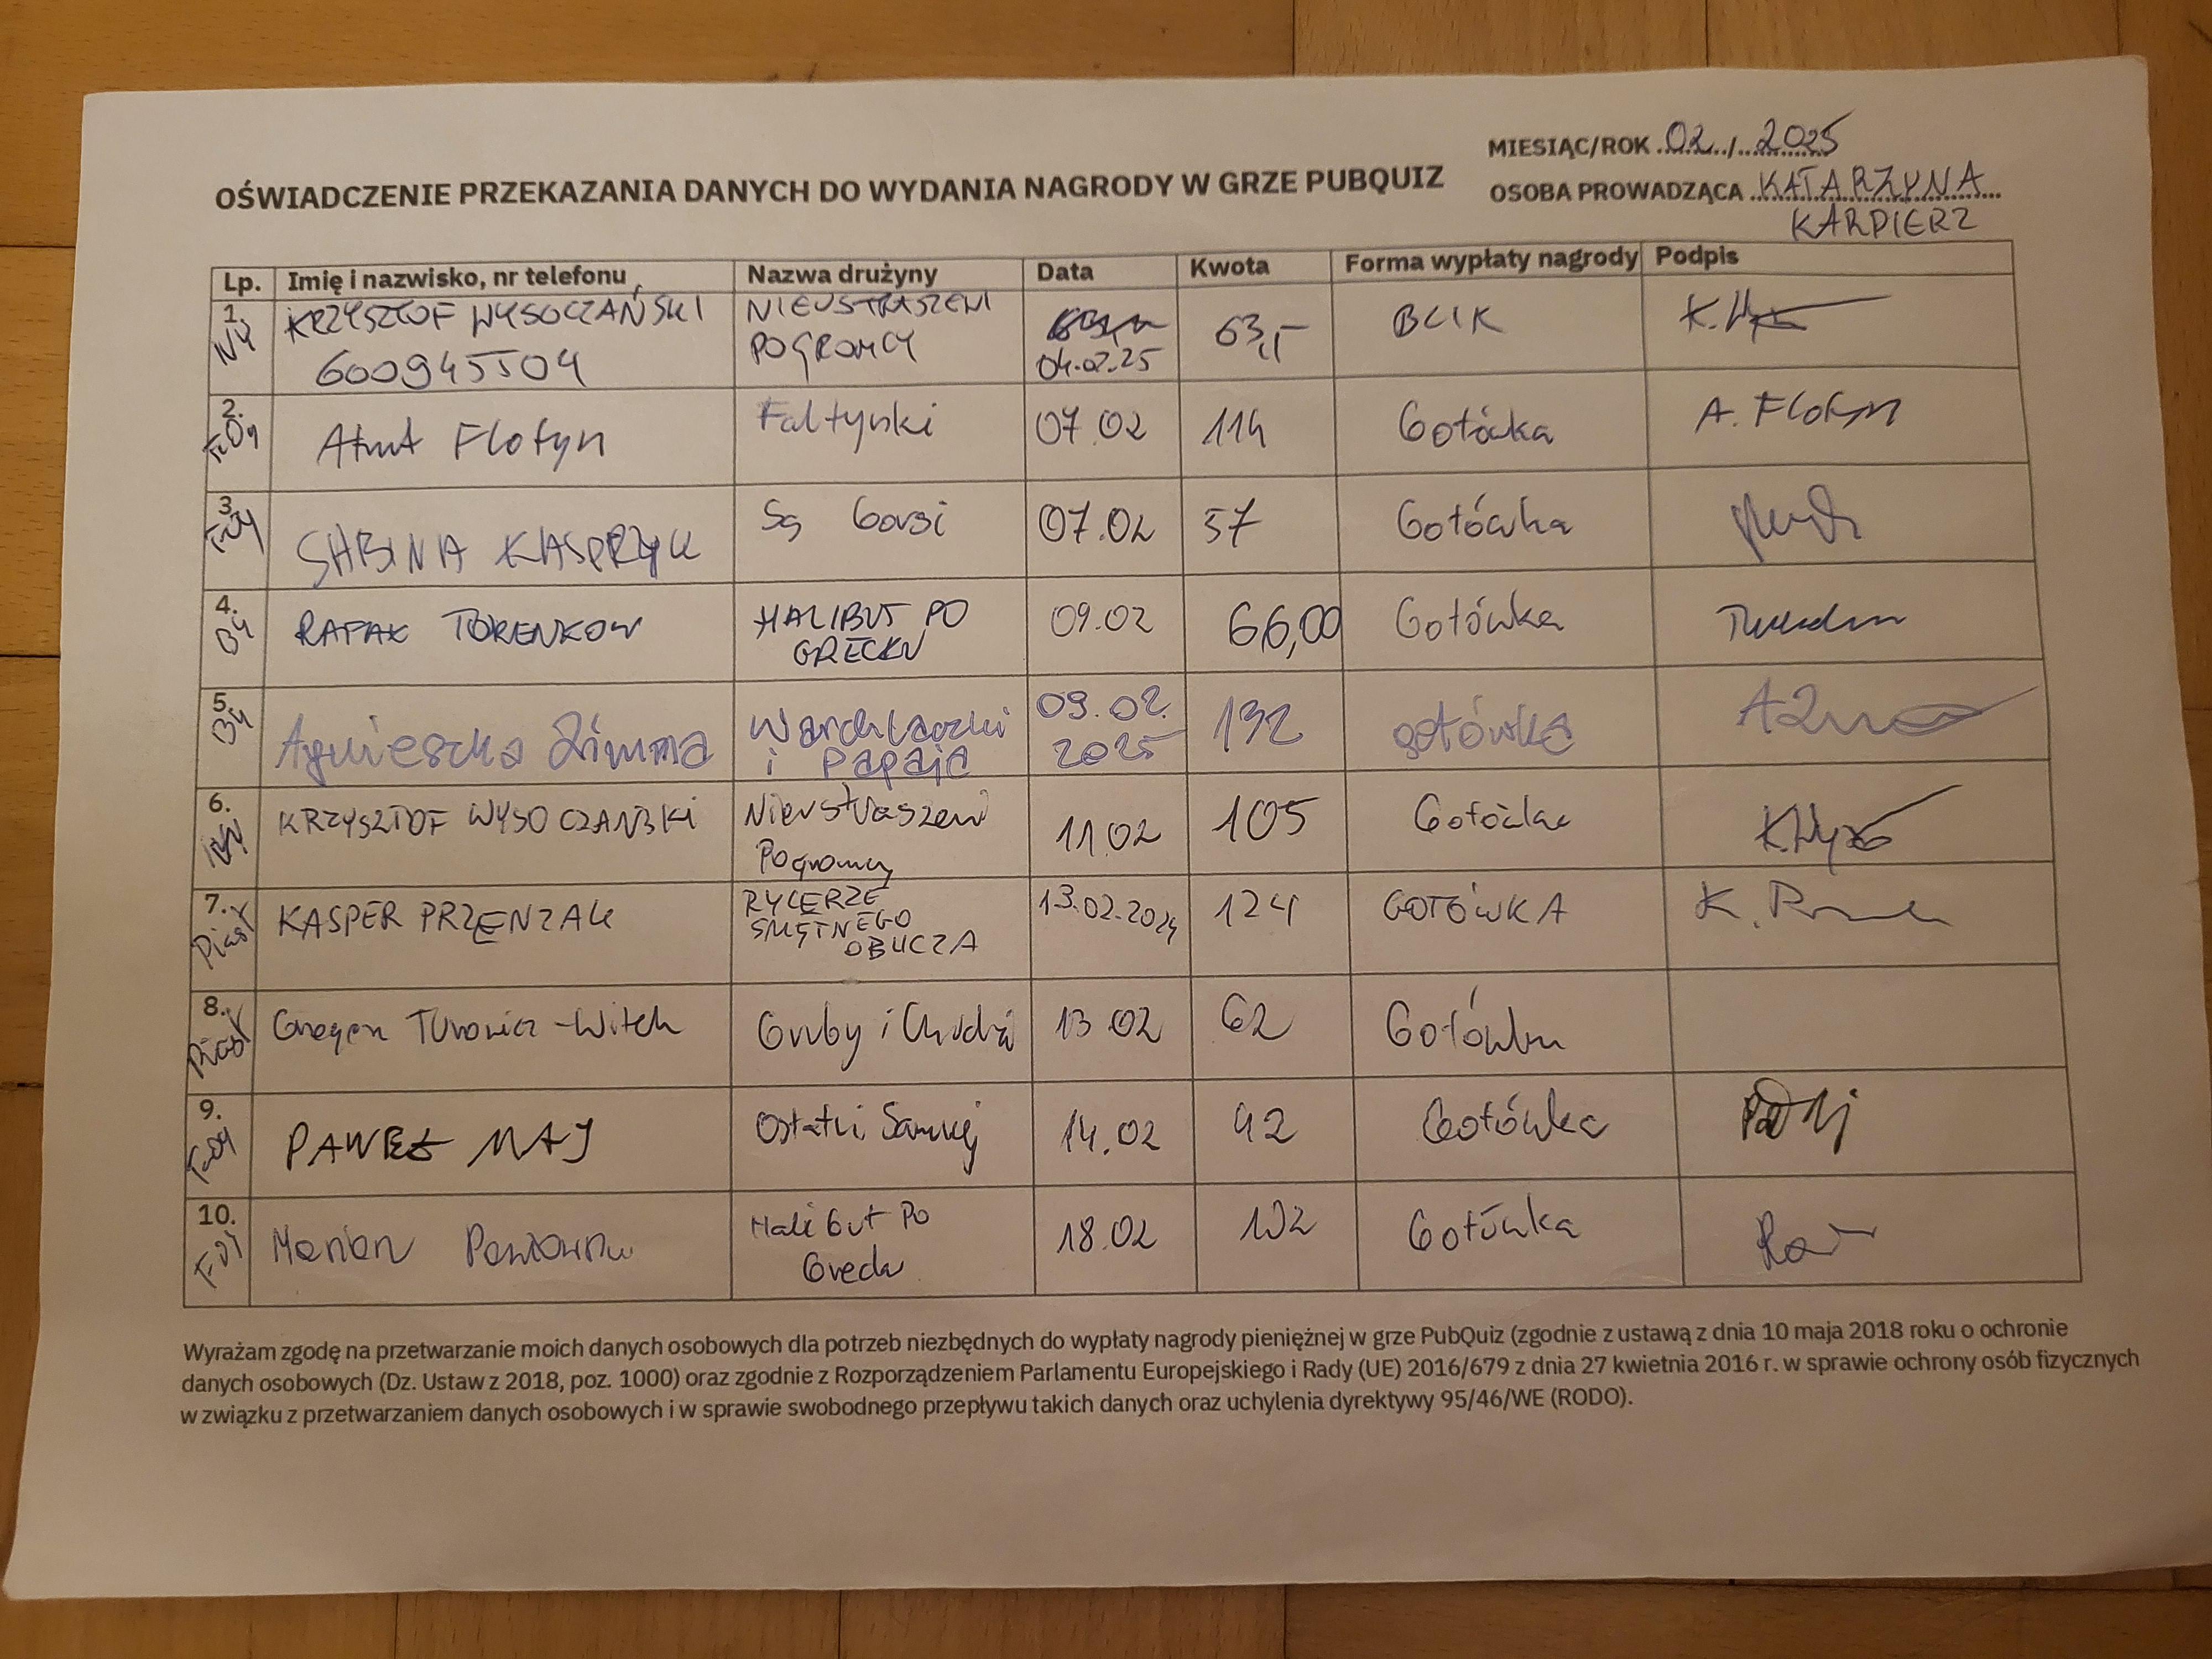 MIESIĄC/ROK 02 / 2025
OŚWIADCZENIE PRZEKAZANIA DANYCH DO WYDANIA NAGRODY W GRZE PUBQUIZ
OSOBA PROWADZĄCA KATARZYNA
KARPIERZ
Lp. Imię i nazwisko, nr telefonu Nazwa drużyny Data Kwota Forma wypłaty nagrody Podpis
1. KRZYSZTOF WYSOCZAŃSKI NIEUSTRASZENI 63,- BLIK
N4 600945504 POGROMCY 04.02.25
2. Flotyn Faltynki 07.02 114 Gotówka A. Flotyn
3. SABINA KASPRZYK Są Gorsi 07.02 57 Gotówka
4. RAFAŁ TORENKOW HALIBUT PO 09.02 66,00 Gotówka
B4 GRECKU
5. Agnieszka Zimma Warchlaczki 09.02. 132 gotówka
B4 i Papaja 2025
6. KRZYSZTOF WYSOCZAŃSKI Nieustraszeni 11.02 105 Gotówka
Pogromcy
7. KASPER PRZĘNZAK RYCERZE 13.02.2024 124 GOTÓWKA
Piast SMĘTNEGO
OBUCZA
8. Turowicz-Witek Gruby i Chudzi 13.02 62 Gotówka
Piast
9. PAWEŁ MAJ Ostatni Samuraj 14.02 42 Gotówka
10. Marian Halibut Po 18.02 102 Gotówka
Grecku
Wyrażam zgodę na przetwarzanie moich danych osobowych dla potrzeb niezbędnych do wypłaty nagrody pieniężnej w grze PubQuiz (zgodnie z ustawą z dnia 10 maja 2018 roku o ochronie
danych osobowych (Dz. Ustaw z 2018, poz. 1000) oraz zgodnie z Rozporządzeniem Parlamentu Europejskiego i Rady (UE) 2016/679 z dnia 27 kwietnia 2016 r. w sprawie ochrony osób fizycznych
w związku z przetwarzaniem danych osobowych i w sprawie swobodnego przepływu takich danych oraz uchylenia dyrektywy 95/46/WE (RODO).